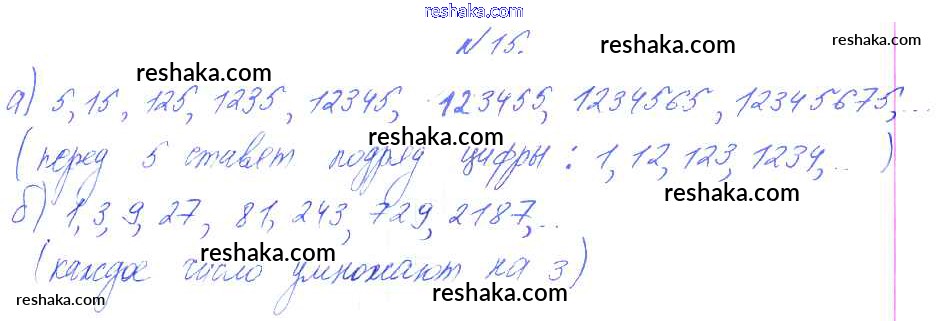 reshaka.com
№15. reshaka.com
reshaka.com reshaka.com
а) 5, 15, 125, 1235, 12345, 123455, 1234565, 12345675,...
reshaka.com
(перед 5 ставят подряд цифры: 1, 12, 123, 1234,... )
reshaka.com
б) 1, 3, 9, 27, 81, 243, 729, 2187,...
reshaka.com reshaka.com
(каждое число умножают на 3)
reshaka.com reshaka.com reshaka.com